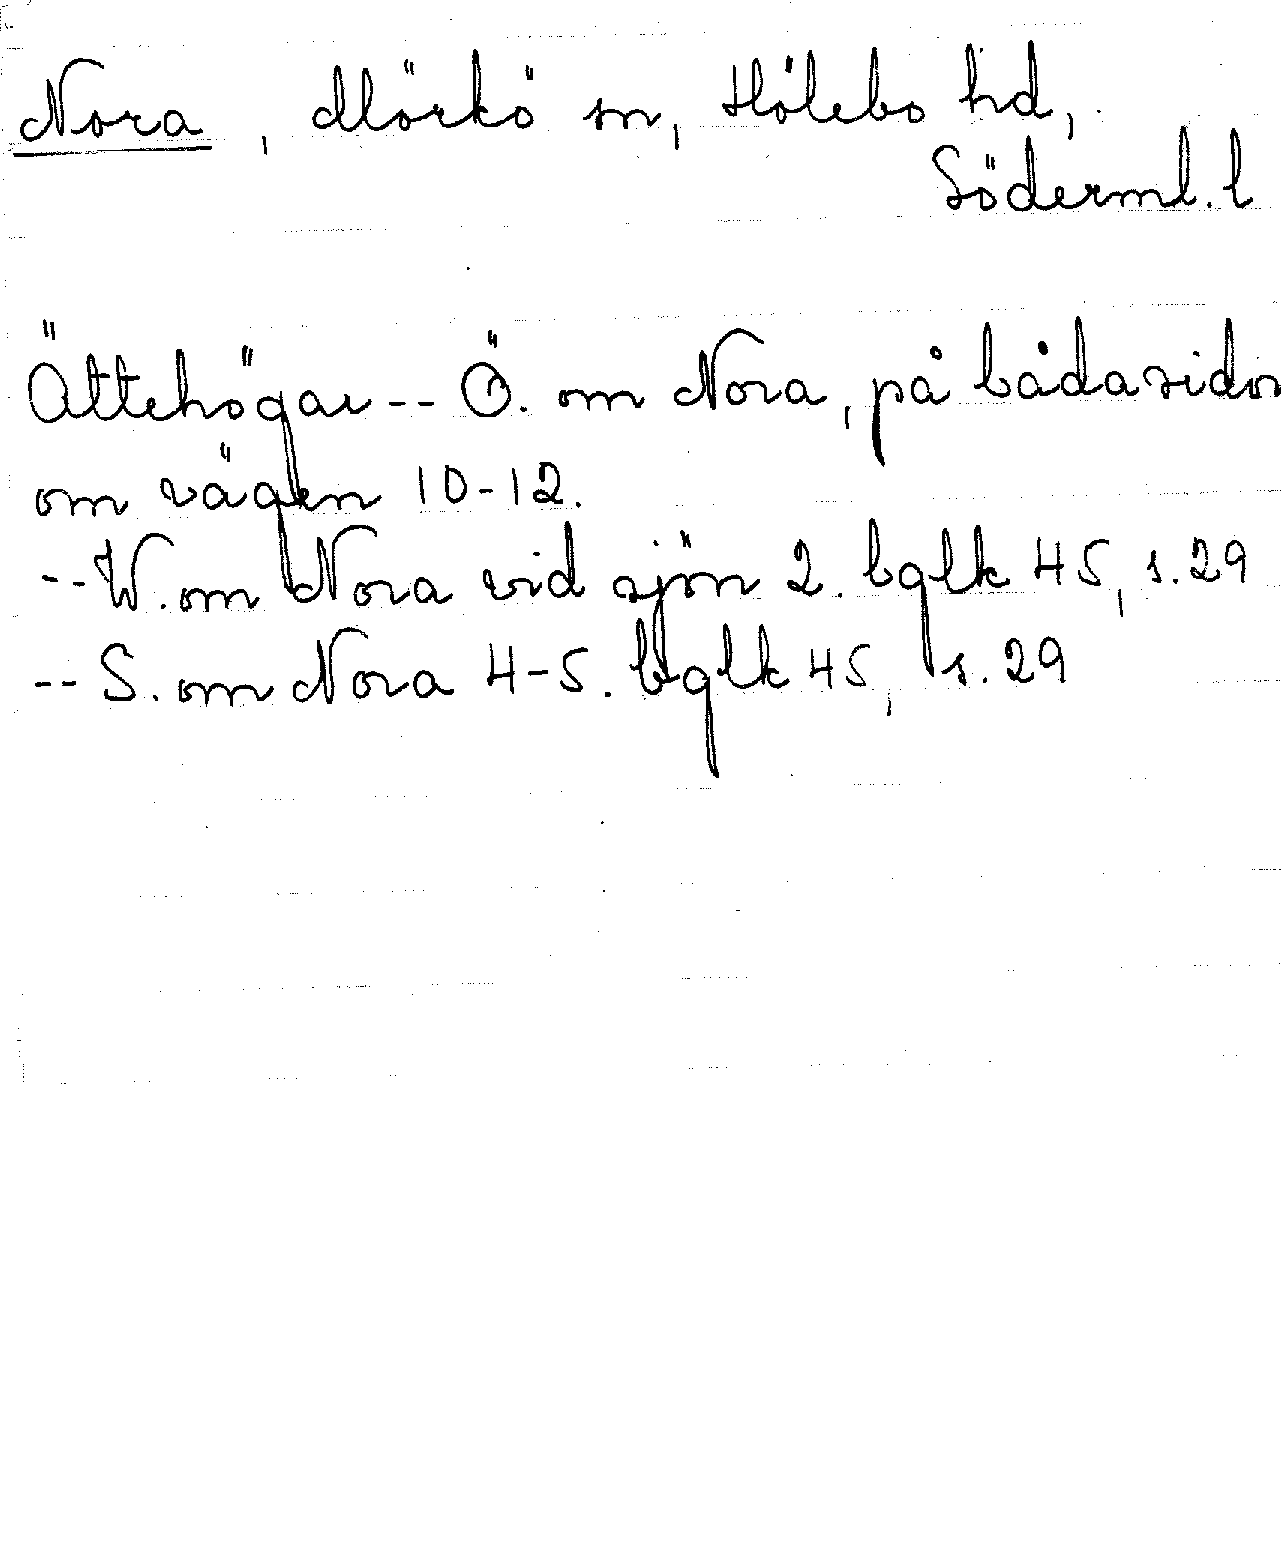 Nora, Mörkö sn, Hölebo hd,
Söderml. l
Ättehögar -- Ö. om Nora, på båda sidor
om vägen 10-12.
-- W. om Nora vid sjön 2. bglk 45, s. 29
-- S. om Nora 4-5. bglk 45, s. 29